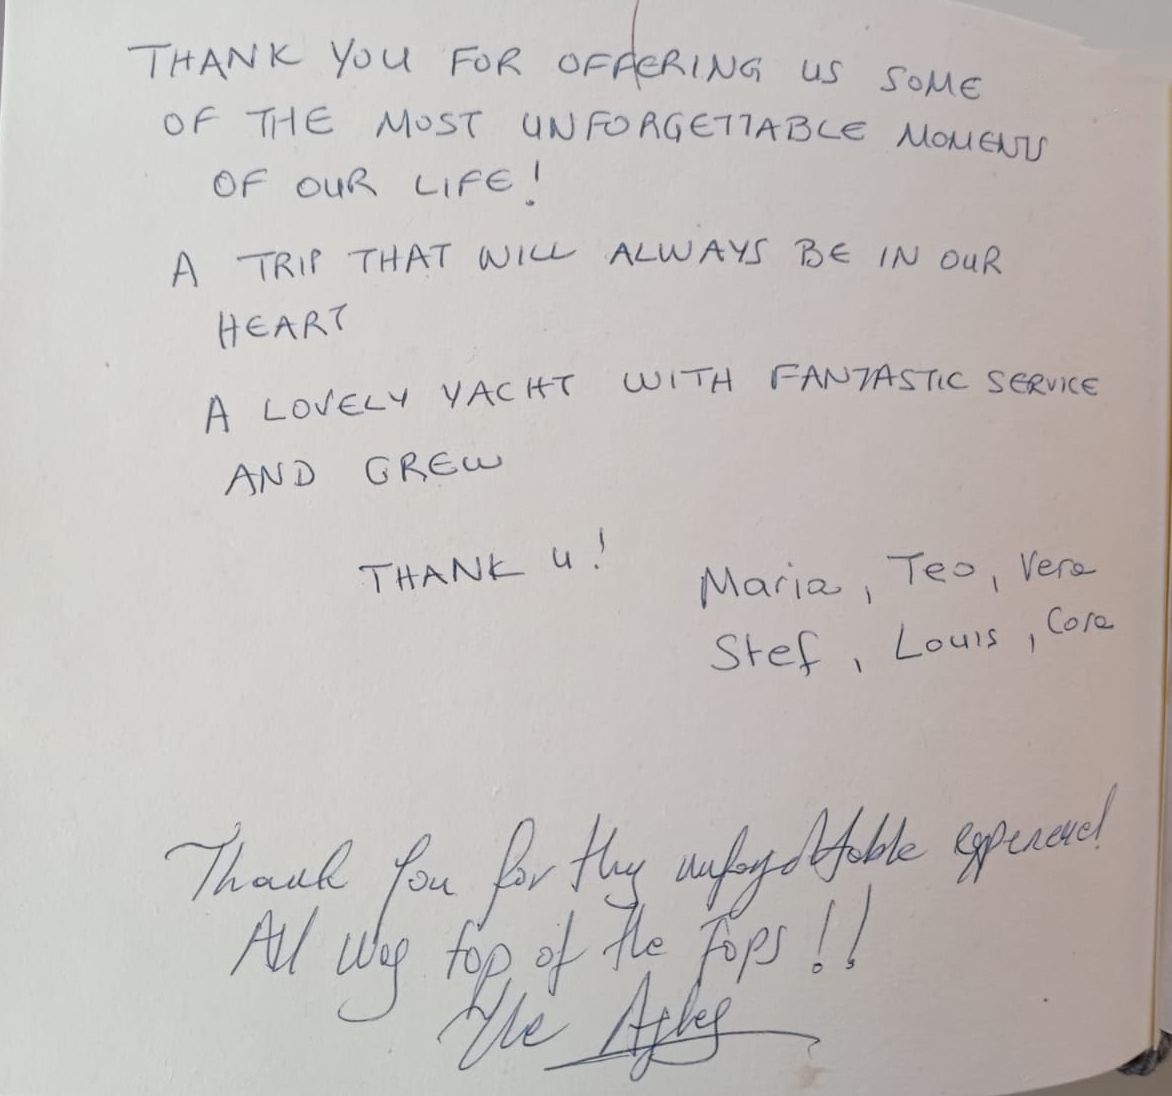 THANK YOU FOR OFFERING US SOME
OF THE MOST UNFORGETTABLE MOMENTS
OF OUR LIFE!
A TRIP THAT WILL ALWAYS BE IN OUR
HEART
A LOVELY YACHT WITH FANTASTIC SERVICE
AND GREW
THANK U!
Maria, Teo, Vera
Stef, Louis, Cora
Thank You for this unforgettable experience!
All was top of the Tops!!
The